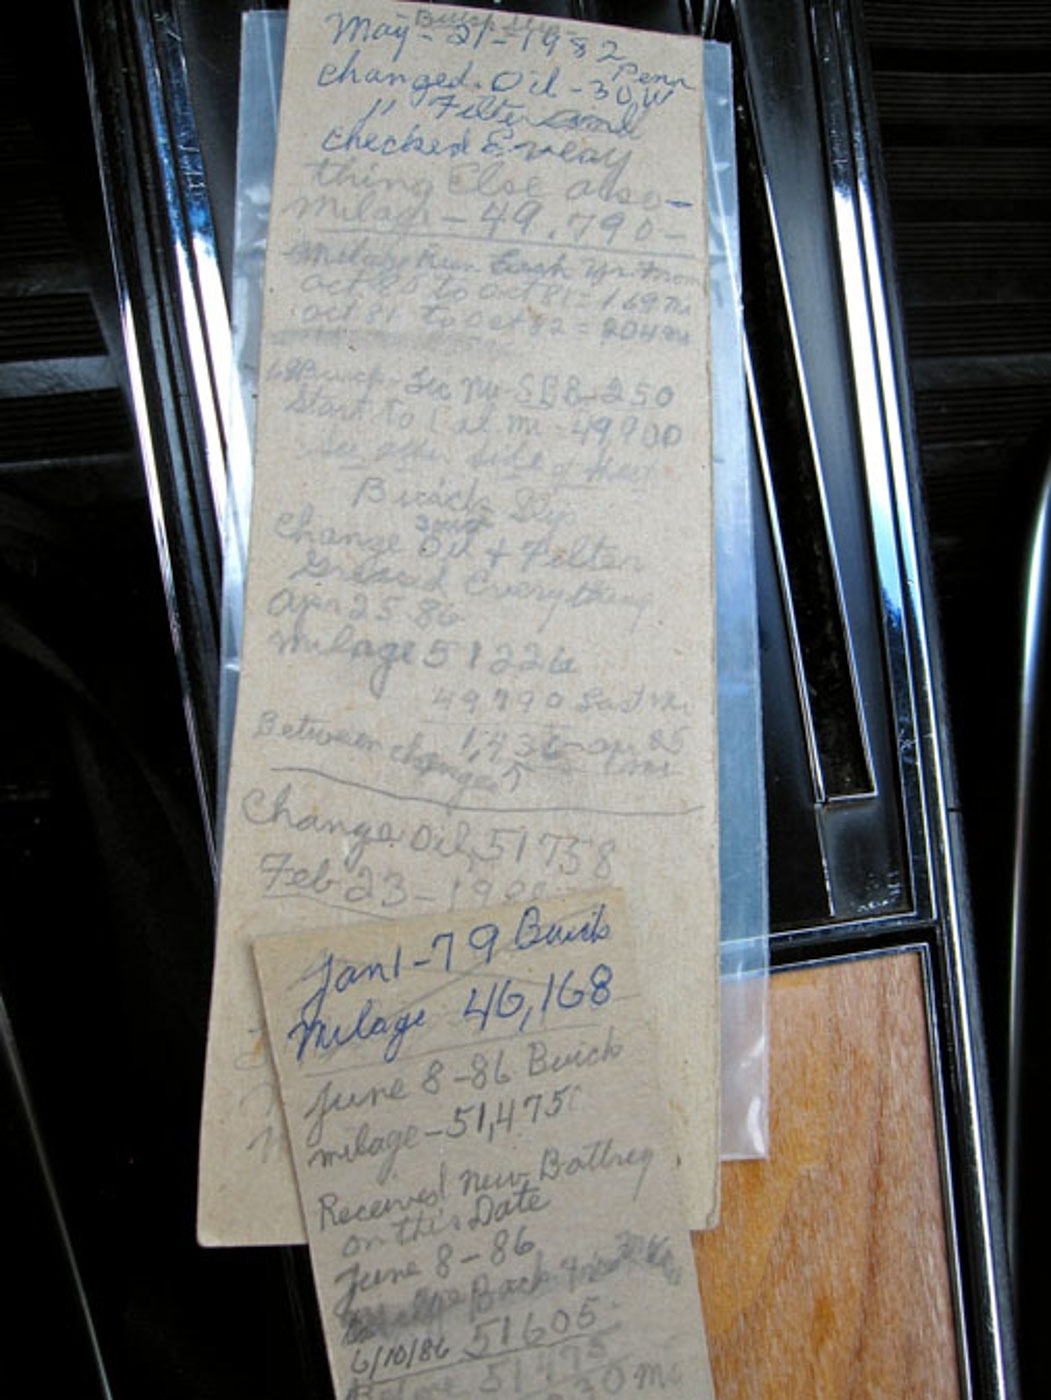 Buick
May-21-1982
Penn
changed. Oil - 30W
" Filter and
checked Every
thing Else also-
Milage - 49,790-
Milage Run Each yr from
oct 80 to oct 81 = 169 mi
oct 81 to oct 82 = 204 mi
Buick Lic No - SBB-250
Start to Cal mi - 49900
See other side of
Buick
change Oil & Filter
Greased Everything
Apr 25 86
Milage 51226
49790 Last mi
1,436 apr 85
Between changes
Change Oil 51758
Feb 23-19
Jan 1-79 Buick
Milage 46,168
June 8-86 Buick
milage-51,475
Received New Battrey
on this Date
June 8-86
Back
6/10/86 51605
Before 51475
30 Mi